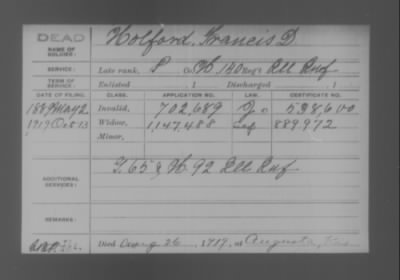 DEAD
NAME OF SOLDIER:
Holford, Francis D.
SERVICE:
Late rank, P Co. H, 140 Reg't Ill Inf
TERM OF SERVICE:
Enlisted , 1 Discharged , 1
DATE OF FILING. CLASS. APPLICATION NO. LAW. CERTIFICATE NO.
1889 May 2 Invalid, 702,689 538,600
1919 Oct 13 Widow, 1,147,488 889,972
Minor,
ADDITIONAL SERVICES:
G. 65 & H. 92 Ill Inf
REMARKS:
Died Aug 26, 1919, at Augusta, Kan